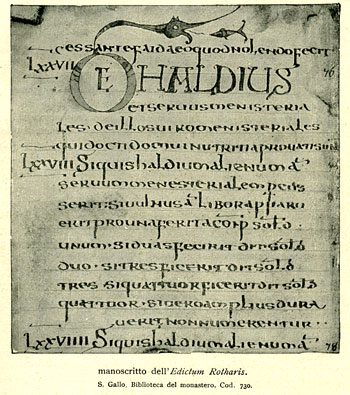 cessante faida eo quod nolendo fecit
LXXVII DE HALDIUS 76
et seruus menisteria
les. de illos uiro menisteriales
qui docti domui nutriti aprouati sun
LXXVIII Si quis haldium alienum a
seruum menesterialem percus
serit: si uulnus a libor apparu
erit pro una ferita conp sold
unum. si duas fecerit det sold
duo. si tres ficerit det sold
tres si quattuor ficerit det sold
quattuor. si uero amplius dura
uerit non numerentur
LXXVIIII Si quis haldium alienum a 78
manoscritto dell'Edictum Rotharis.
S. Gallo, Biblioteca del monastero. Cod. 730.